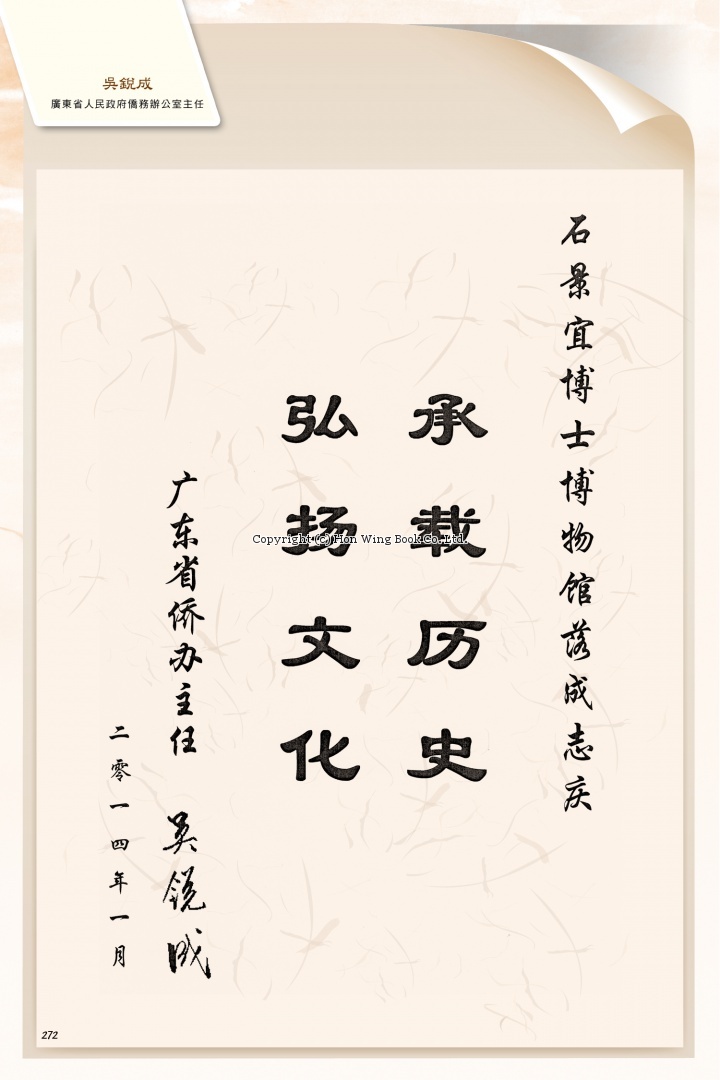 吳銳成
廣東省人民政府僑務辦公室主任
石景宜博士博物馆落成志庆
承载历史
弘扬文化
广东省侨办主任 吴锐成
二零一四年一月
Copyright (c) Hon Wing Book Co.,Ltd.
272